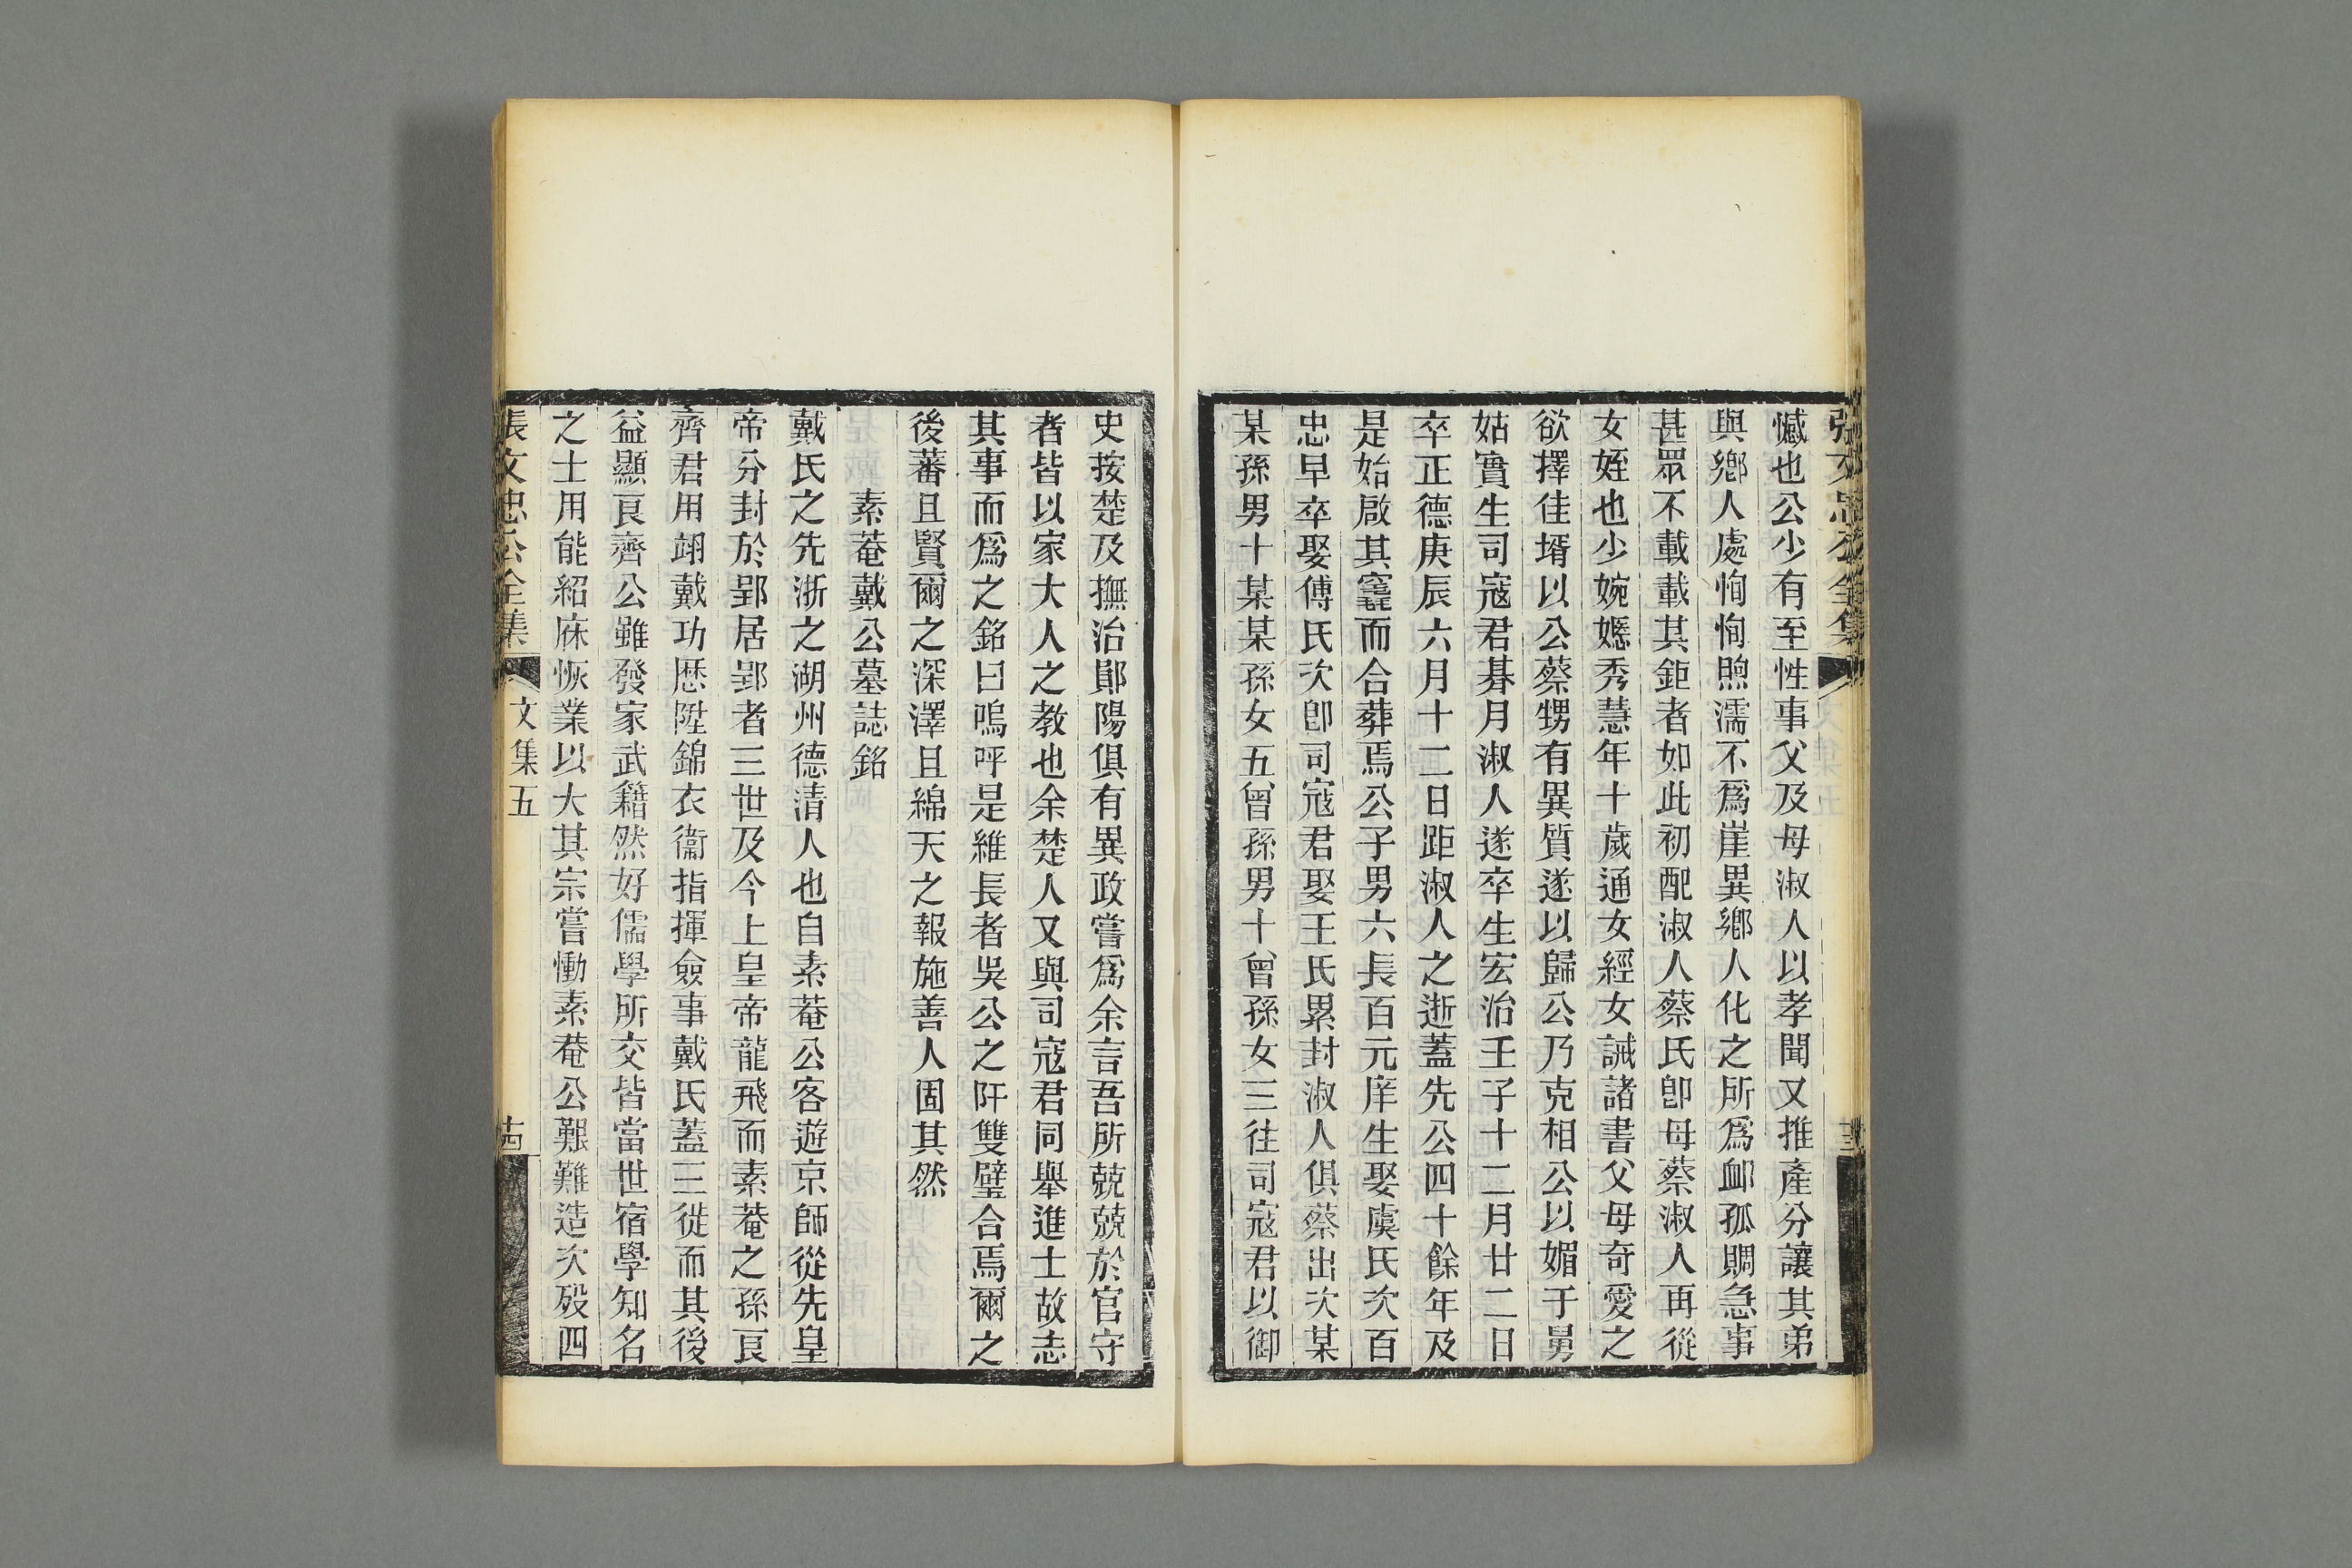 張文忠公全集
憾也公少有至性事父及母淑人以孝聞又推產分讓其弟
與鄉人處恂恂煦濡不爲崖異鄉人化之所爲卹孤賙急事
甚眾不載載其鉅者如此初配淑人蔡氏卽母蔡淑人再從
女姪也少婉嫕秀慧年十歲通女經女誡諸書父母奇愛之
欲擇佳壻以公蔡甥有異質遂以歸公乃克相公以媚于舅
姑實生司寇君朞月淑人遂卒生宏治壬子十二月廿二日
卒正德庚辰六月十二日距淑人之逝蓋先公四十餘年及
是始啟其窀而合葬焉公子男六長百元庠生娶虞氏次百
忠早卒娶傅氏次卽司寇君娶王氏累封淑人俱蔡出次某
某孫男十某某孫女五曾孫男十曾孫女三往司寇君以御
史按楚及撫治鄖陽俱有異政嘗爲余言吾所兢兢於官守
者皆以家大人之教也余楚人又與司寇君同舉進士故志
其事而爲之銘曰嗚呼是維長者吳公之阡雙璧合焉爾之
後蕃且賢爾之深澤且綿天之報施善人固其然
素菴戴公墓誌銘
戴氏之先浙之湖州德清人也自素菴公客遊京師從先皇
帝分封於郢居郢者三世及今上皇帝龍飛而素菴之孫良
齊君用翊戴功歷陞錦衣衞指揮僉事戴氏蓋三徙而其後
益顯良齊公雖發家武籍然好儒學所交皆當世宿學知名
之士用能紹庥恢業以大其宗嘗慟素菴公艱難造次歿四
張文忠公全集
文集五
十四